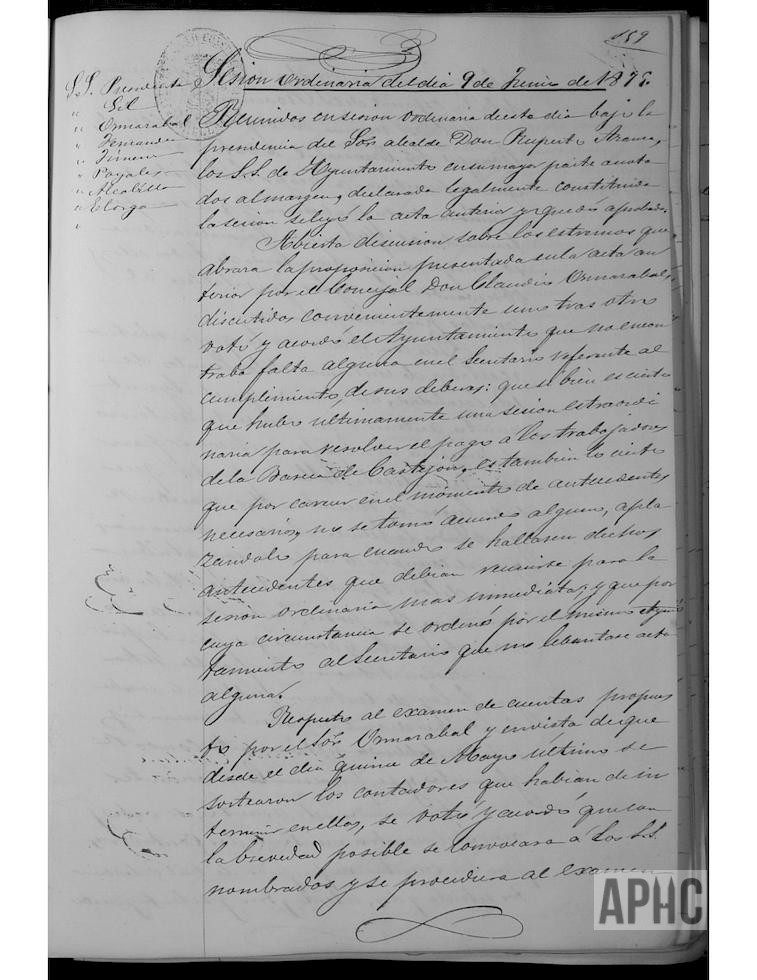 159
Sesion ordinaria del dia 9 de Junio de 1875.
S.S. Presidente
" Gil
" Ormarabal
" Fernandez
" Jimenez
" Payales
" Alcabilla
" Elorga
"
Reunidos en sesion ordinaria de este dia bajo la
presidencia del Sor. alcalde Don Ruperto
los S.S. de Ayuntamiento en su mayor parte anota
dos al margen, declarada legalmente constituida
la sesion se leyó la acta anterior y quedó aprobada.
Abierta discusion sobre los estremos que
abraza la proposicion presentada en la acta an
terior por el Concejal Don Claudio Ormarabal,
discutidos convenientemente uno tras otro
votó y acordó el Ayuntamiento que no encon
traba falta alguna en el Secretario referente al
cumplimiento de sus deberes: que si bien es cierto
que hubo ultimamente una sesion estraordi
naria para resolver el pago a los trabajadores
de la Barca de Castejon, es tambien lo cierto
que por carecer en el momento de antecedentes
necesarios, no se tomó acuerdo alguno, apla
zandolo para cuando se hallasen dichos
antecedentes que debian reunirse para la
sesion ordinaria mas inmediata; y que por
cuya circunstancia se ordenó por el mismo Ayun
tamiento al Secretario que no lebantase acta
alguna.
Respecto al examen de cuentas propues
to por el Sor. Ormarabal y en vista de que
desde el dia quince de Mayo último se
sortearon los contadores que habian de in
tervenir en ellas, se votó y acordó que con
la brevedad posible se convocara a los S.S.
nombrados y se procediera al examen
APHC